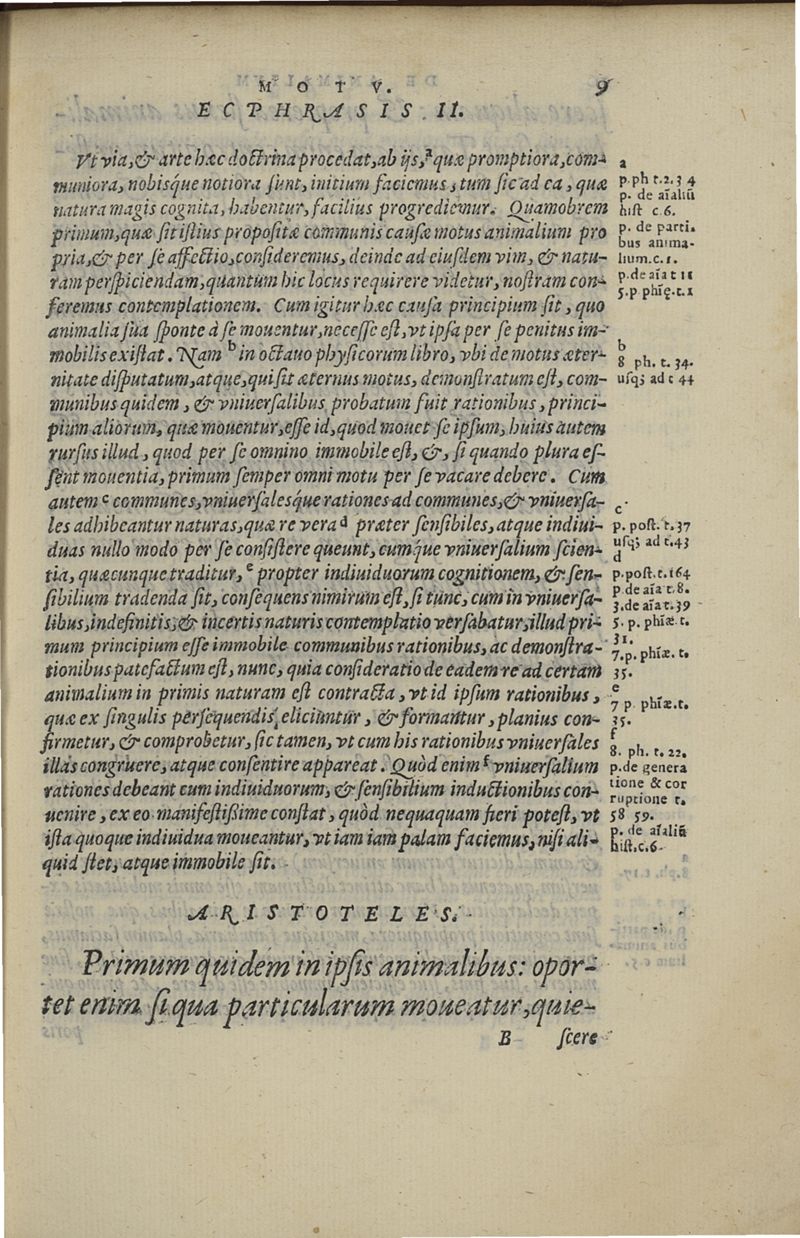 M O T V. 9
ECPHRASIS II.
Vt via, & arte hæc doctrina procedat, ab ijs, ᵃ quæ promptiora, com-
muniora, nobisq́ue notiora sunt, initium faciemus, tum sic ad ea, quæ
natura magis cognita, habentur, facilius progrediemur. Quamobrem
primum, quæ sit istius propositæ communis causæ motus animalium pro
pria, & per se affectio, consideremus, deinde ad eiusdem vim, & natu-
ram perspiciendam, quantum hic locus requirere videtur, nostram con-
feremus contemplationem. Cum igitur hæc causa principium sit, quo
animalia sua sponte à se mouentur, necesse est, vt ipsa per se penitus im-
mobilis existat. Nam ᵇ in octauo physicorum libro, vbi de motus æter-
nitate disputatum, atque, qui sit æternus motus, demonstratum est, com-
munibus quidem, & vniuersalibus probatum fuit rationibus, princi-
pium aliorum, quæ mouentur, esse id, quod mouet se ipsum, huius autem
rursus illud, quod per se omnino immobile est, &, si quando plura es-
sent mouentia, primum semper omni motu per se vacare debere. Cum
autem ᶜ communes, vniuersalesq́ue rationes ad communes, & vniuersa-
les adhibeantur naturas, quæ re vera ᵈ præter sensibiles, atque indiui-
duas nullo modo per se consistere queunt, cumq́ue vniuersalium scien-
tia, quæcunque traditur, ᵉ propter indiuiduorum cognitionem, & sen-
sibilium tradenda sit, consequens nimirum est, si tunc, cum in vniuersa-
libus, indefinitis, & incertis naturis contemplatio versabatur, illud pri-
mum principium esse immobile communibus rationibus, ac demonstra-
tionibus patefactum est, nunc, quia consideratio de eadem re ad certam
animalium in primis naturam est contracta, vt id ipsum rationibus,
quæ ex singulis persequendis eliciuntur, & formantur, planius con-
firmetur, & comprobetur, sic tamen, vt cum his rationibus vniuersales
illas congruere, atque consentire appareat. Quòd enim ᶠ vniuersalium
rationes debeant cum indiuiduorum, & sensibilium inductionibus con-
uenire, ex eo manifestißime constat, quòd nequaquam fieri potest, vt
ista quoque indiuidua moueantur, vt iam iam palam faciemus, nisi ali-
quid stet, atque immobile sit.
a
p. ph t. 2. 3 4
p. de aīaliū
hist c. 6.
p. de parti.
bus anima-
lium. c. 1.
p. de aīa t 11
5. p phīę. t. 1
b
8 ph. t. 34.
usq; ad t 44
c
p. post. t. 37
usq; ad t. 43
d
p. post. t. 164
p de aīa t. 8.
3. de aīa t. 39
5. p. phīæ t.
31.
7. p. phīæ. t.
35.
e
7 p phīæ. t.
35.
f
8. ph. t. 22.
p. de genera
tione & cor
ruptione t.
58 59.
p. de aīaliū
hist. c. 6
ARISTOTELES.
Primum quidem in ipsis animalibus: opor-
tet enim si qua particularum moueatur, quie-
B scere